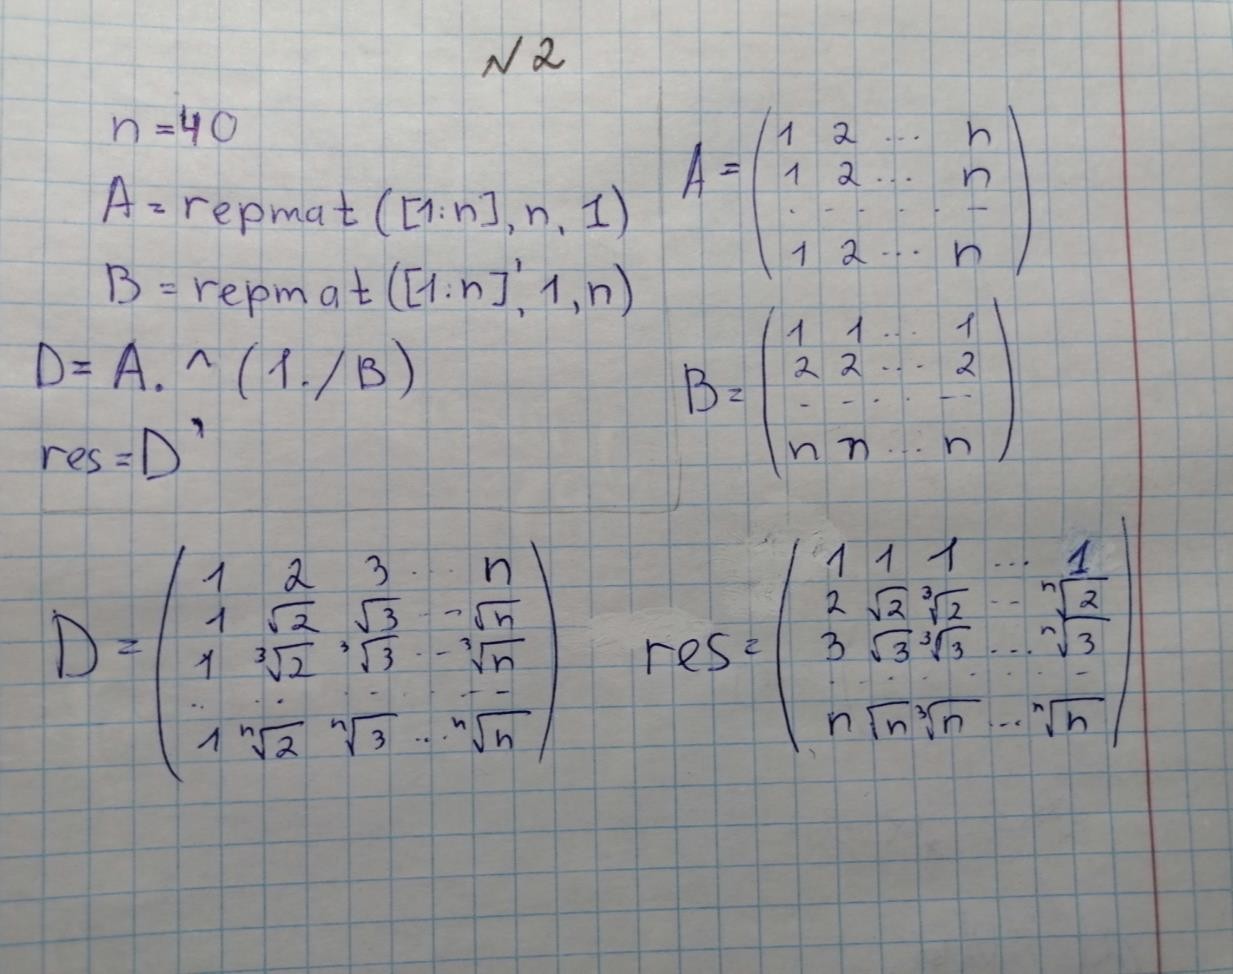 №2
n=40
A=repmat([1:n], n, 1)
B=repmat([1:n]', 1, n)
D=A.^(1./B)
res=D'
A=
1 2 ... n
1 2 ... n
. - . - . -
1 2 ... n
B=
1 1 ... 1
2 2 ... 2
- - . . - -
n n ... n
D=
1 2 3 ... n
1 √2 √3 ... √n
1 ³√2 ³√3 ... ³√n
.. .. . . - -
1 ⁿ√2 ⁿ√3 ... ⁿ√n
res=
1 1 1 ... 1
2 √2 ³√2 ... ⁿ√2
3 √3 ³√3 ... ⁿ√3
. . . . . . . -
n √n ³√n ... ⁿ√n